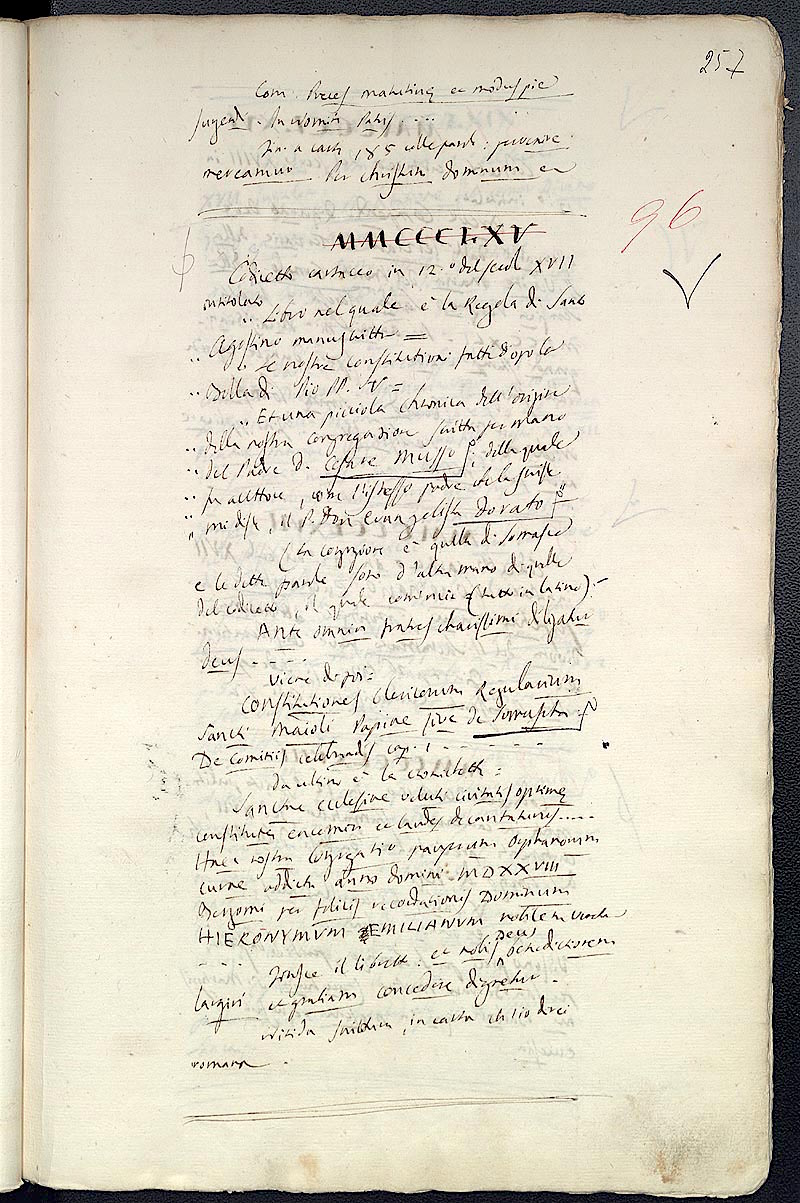 257
Com. Preces matutinę et modus pie
In nomine Patris ....
Fin. a carte 185 colle parole: pervenire
mereamur Per Christum dominum etc
96
MMCCCLXV
Codicetto cartaceo in 12.º del secolo XVII
intitolato
" Libro nel quale è la Regola di Santo
" Agostino manuscritta =
" Le nostre constitutioni fatti dopo la
" Bolla di Pio PP. IV =
" Et una picciola chronica dell'origine
" della nostra congregatione scritta per mano
" del Padre D. Cesare Musso, della quale
" fu Authore, come l'istesso padre che la scrisse
" mi disse, il P. Don Evangelista Dorato
(La congregazione è quella di Somasca
e le dette parole sono d'altra mano di quelle
del codicetto, il quale comincia (tutto in latino):
Ante omnia fratres charissimi diligatur
Deus ----
Viene di poi:
Constitutiones Clericorum Regularium
Sancti Maioli Papiae sive de Somascha
De Comitiis celebrandis cap. 1 -------
Da ultimo è la cronichetta:
Sanctae ecclesiae veluti civitatis optimę
constitutę encomia et laudes decantaturis.....
Haec nostra Congregatio pauperum Orphanorum
curae addicta anno domini MDXXVIII
Bergomi per felicis recordationis Dominum
HIERONYMVM EMILIANVM nobilem
----
Finisce il libretto: et nobis Deus benedictionem
largiri et gratiam concedere dignetur.
romana.